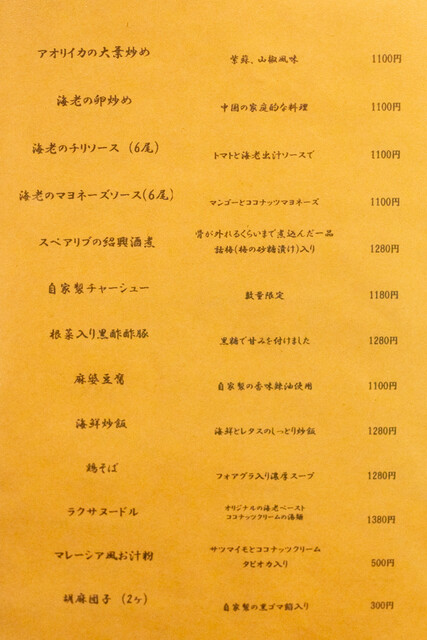 アオリイカの大葉炒め 紫蘇、山椒風味 1100円
海老の卵炒め 中国の家庭的な料理 1100円
海老のチリソース (6尾) トマトと海老出汁ソースで 1100円
海老のマヨネーズソース(6尾) マンゴーとココナッツマヨネーズ 1100円
スペアリブの紹興酒煮 骨が外れるくらいまで煮込んだ一品 1280円
話梅(梅の砂糖漬け)入り
自家製チャーシュー 数量限定 1180円
根菜入り黒酢酢豚 黒糖で甘みを付けました 1280円
麻婆豆腐 自家製の香味辣油使用 1100円
海鮮炒飯 海鮮とレタスのしっとり炒飯 1280円
鶏そば フォアグラ入り濃厚スープ 1280円
ラクサヌードル オリジナルの海老ペースト 1380円
ココナッツクリームの湯麺
マレーシア風お汁粉 サツマイモとココナッツクリーム 500円
タピオカ入り
胡麻団子 (2ヶ) 自家製の黒ゴマ餡入り 300円